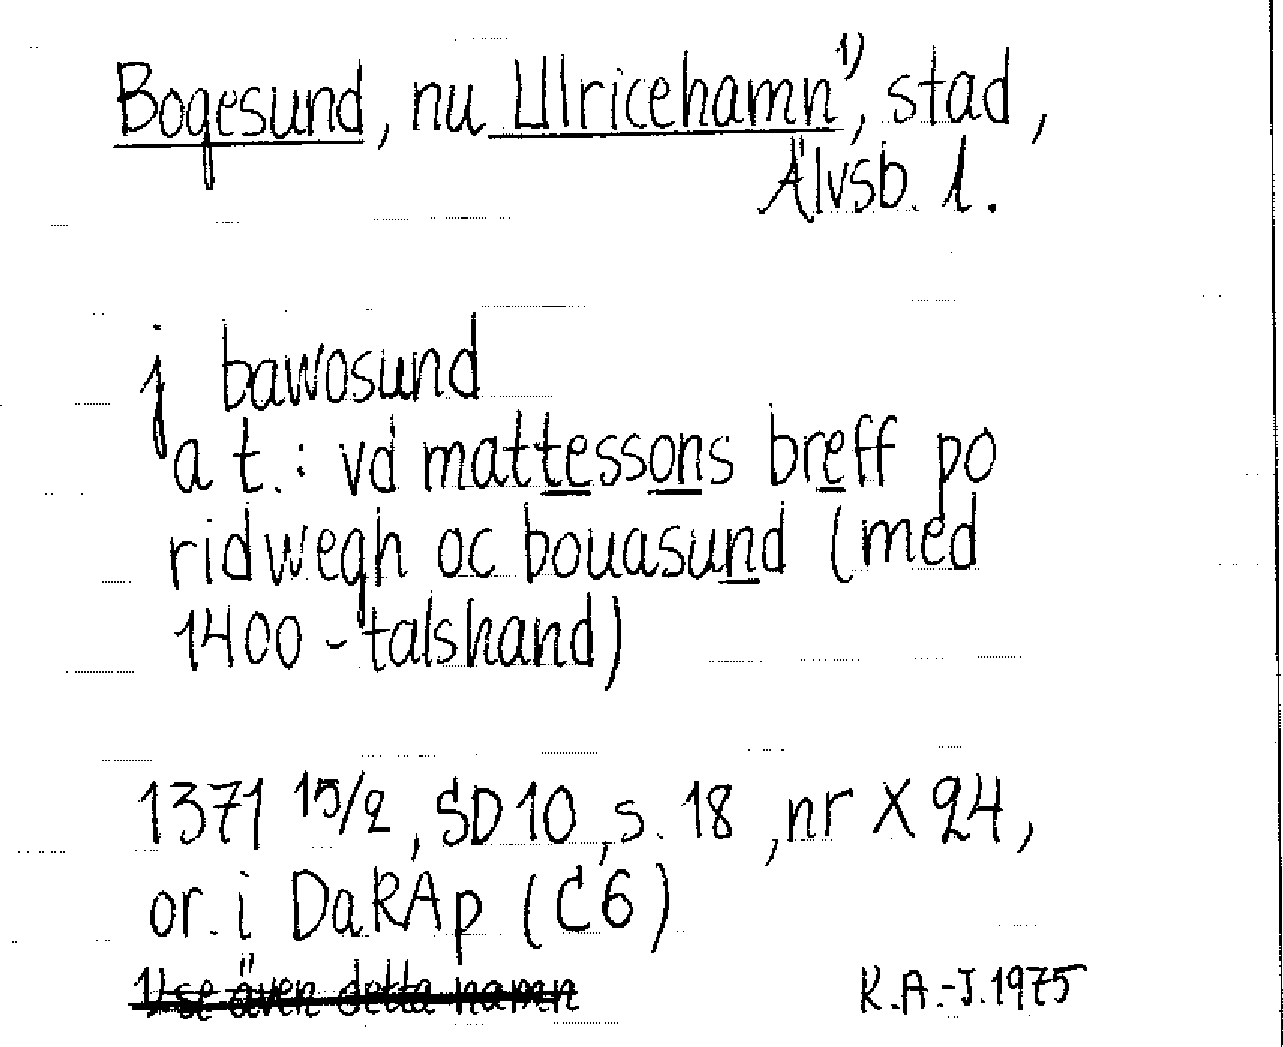 Bogesund, nu Ulricehamn¹⁾, stad,
Älvsb. l.
j bawosund
a t.: vd mattessons breff po
ridwegh oc bouasund (med
1400-talshand)
1371 15/2, SD 10, s. 18, nr X 24,
or. i DaRAp (C 6)
1) se även detta namn
K.A.-J. 1975